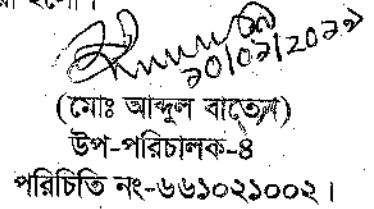 হলো।
১০/০১/২০২২
(মোঃ আব্দুল বাতেন)
উপ-পরিচালক-৪
পরিচিতি নং-৬৬১০২১০০২।